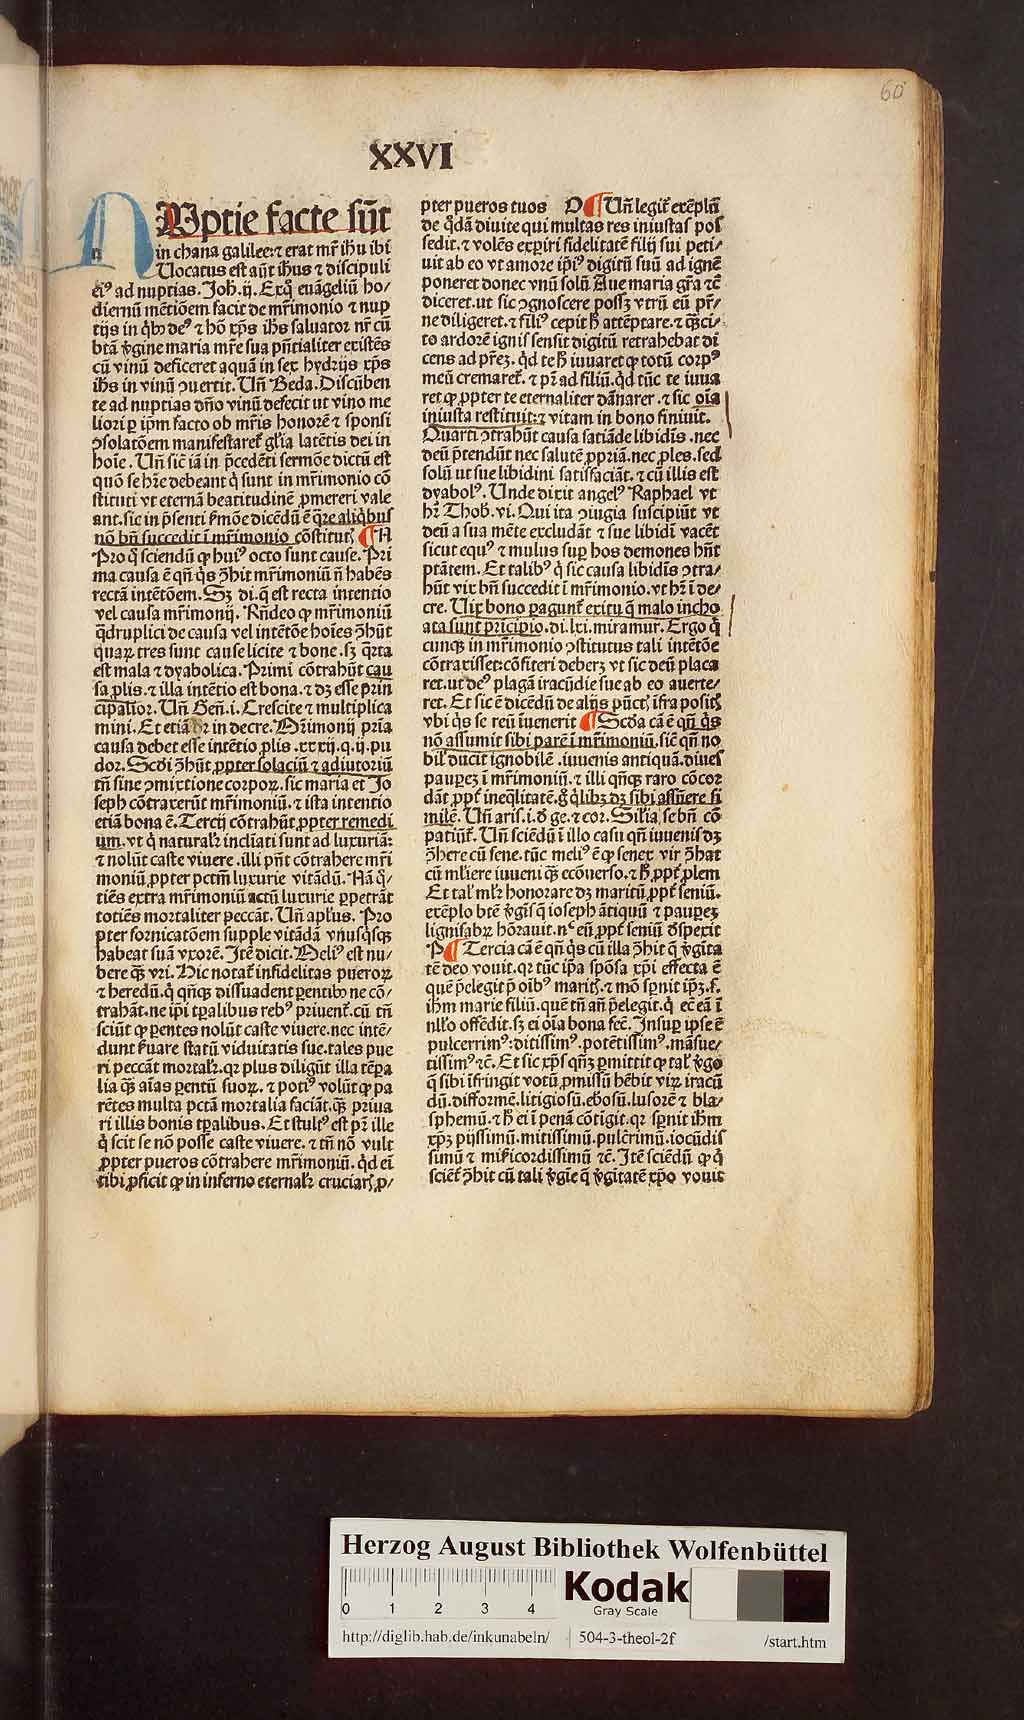 60
XXVI
NUptie facte sūt
in chana galilee: ⁊ erat mr̄ ihū ibi
Uocatus est aūt ihūs ⁊ discipuli
eiꝰ ad nuptias. Joh̄. ij. Ex q̄ euāgeliū ho/
diernū mētiōem facit de mr̄imonio ⁊ nup
tijs in q̄bꝰ deꝰ ⁊ hō xp̄s ih̄s saluator nr̄ cū
btā v̄gine maria mr̄e sua pn̄tialiter existēs
cū vinū deficeret aquā in sex hydrijs xp̄s
ih̄s in vinū ↄuertit. Un̄ Beda. Discūben
te ad nuptias dn̄o vinū defecit ut vino me
liori ꝑ ip̄m facto ob mr̄is honorē ⁊ sponsi
ↄsolatōem manifestaret᷑ gl̄ia latētis dei in
hoīe. Un̄ sic̄ iā in p̄cedēti sermōe dictū est
quō se hr̄e debeant q̄ sunt in mr̄imonio cō
stituti vt eternā beatitudinē ꝓmereri vale
ant. sic in p̄senti s̄mōe dicēdū ē q̄re aliq̄bus
nō bn̄ succedit ī mr̄imonio cōstitut᷑. A
Pro q̄ sciendū ꝙ huiꝰ octo sunt cause. Pri
ma causa ē qn̄ q̄s ↄ̄hit mr̄imoniū n̄ habēs
rectā intētōem. Sꝫ di. q̄ est recta intentio
vel causa mr̄imonij. Rn̄deo ꝙ mr̄imoniū
q̄druplici de causa vel intētōe hoīes ↄ̄hūt
quaꝝ tres sunt cause licite ⁊ bone. sꝫ q̄rta
est mala ⁊ dyabolica. Primi cōtrahūt cau
sa ꝓlis. ⁊ illa intētio est bona. ⁊ dꝫ esse prin
cipalior. Un̄ Gen̄. i. Crescite ⁊ multiplica
mini. Et etiā dr̄ in decre. Mr̄imonij pr̄ia
causa debet esse intētio ꝓlis. xxxij. q. ij. pu
dor. Scd̄i ↄ̄hūt ꝓpter solaciū ⁊ adiutoriū
tn̄ sine ↄmixtione corpoꝝ. sic maria et Jo
seph cōtraxerūt mr̄imoniū. ⁊ ista intentio
etiā bona ē. Tercij cōtrahūt ꝓpter remedi
um. vt q̄ naturalꝛ inclīati sunt ad luxuriā:
⁊ nolūt caste viuere. illi pn̄t cōtrahere mr̄i
moniū ꝓpter pctm̄ luxurie vitādū. Nā q̄/
tiēs extra mr̄imoniū actū luxurie ꝑpetrāt
totiēs mortaliter peccāt. Un̄ apl̄us. Pro
pter fornicatōem supple vitādā vnusq̄sꝗ
habeat suā vxorē. Itē dicit. Meliꝰ est nu/
bere q̄ꝫ vri. Hic notat᷑ infidelitas pueroꝝ
⁊ heredū. q̄ qn̄ꝗ dissuadent ꝑentibꝰ ne cō/
trahāt. ne ip̄i tꝑalibus rebꝰ priuent᷑. cū tn̄
sciūt ꝙ ꝑentes nolūt caste viuere. nec intē/
dunt s̄uare statū viduitatis sue. tales pue
ri peccāt mortalꝛ. qꝛ plus diligūt illa tēꝑa
lia q̄ꝫ aīas ꝑentū suoꝝ. ⁊ potiꝰ volūt ꝙ pa
rētes multa pctā mortalia faciāt. q̄ꝫ priua
ri illis bonis tꝑalibus. Et stultꝰ est pr̄ ille
q̄ scit se nō posse caste viuere. ⁊ tn̄ nō vult
ꝓpter pueros cōtrahere mr̄imoniū. q̄d eī
tibi ꝓficit ꝙ in inferno eternalꝛ cruciar᷑. ꝓ/
pter pueros tuos O Un̄ legit᷑ exēplū
de q̄dā diuite qui multas res iniustas pos
sedit. ⁊ volēs exꝑiri fidelitatē filij sui peti/
uit ab eo vt amore ip̄iꝰ digitū suū ad ignē
poneret donec vnū solū Aue maria gr̄a ⁊c̄
diceret. ut sic ↄgnoscere possꝫ vtrū eū pr̄/
ne diligeret. ⁊ filiꝰ cepit h̄ attēptare. ⁊ q̄ꝫci/
to ardorē ignis sensit digitū retrahebat di
cens ad pr̄eꝫ. q̄d te h̄ iuuaret ꝙ totū corpꝰ
meū cremaret᷑. ⁊ pr̄ ad filiū. q̄d tūc te iuua
ret ꝙ ꝓpter te eternaliter dānarer. ⁊ sic oīa
iniusta restituit: ⁊ vitam in bono finiuit.
Quarti ↄtrahūt causa satiāde libidīs. nec
deū p̄tendūt nec salutē ꝓpriā. nec ꝓles. sed
solū ut sue libidini satisfaciāt. ⁊ cū illis est
dyabolꝰ. Unde dixit angelꝰ Raphael vt
hr̄ Thob̄. vi. Qui ita ↄiugia suscipiūt vt
deū a sua mēte excludāt ⁊ sue libidī vacēt
sicut equꝰ ⁊ mulus sup̱ hos demones hn̄t
ptātem. Et talibꝰ q̄ sic causa libidīs ↄtra/
hūt vix bn̄ succedit ī mr̄imonio. vt hr̄ ī de/
cre. Uix bono ꝑagunt᷑ exitu q̄ malo incho
ata sunt pricipio. di. lxi. miramur. Ergo q̄
cunꝗ in mr̄imonio ↄstitutus tali intētōe
cōtraxisset: cōfiteri deberꝫ vt sic deū placa
ret. ut deꝰ plagā iracūdie sue ab eo auerte/
ret. Et sic ē dicēdū de alijs pūct᷑, īfra posit᷑
vbi q̄s se reū īuenerit Scd̄a cā ē qn̄ q̄s
nō assumit sibi parē ī mr̄imoniū. sic̄ qn̄ no
bil̄ ducit ignobilē. iuuenis antiquā. diues
pauꝑeꝫ ī mr̄imoniū. ⁊ illi qn̄ꝗ raro cōcor
dāt ꝓpt᷑ ineq̄litatē. ḡ q̄libꝫ dꝫ sibi assūere si
milē. Un̄ aris. i. d̄ ge. ⁊ cor. Sil̄ia se bn̄ cō
patiūt᷑. Un̄ sciēdū ī illo casu qn̄ iuuenis dꝫ
ↄ̄here cū sene. tūc meliꝰ ē ꝙ senex vir ↄ̄hat
cū ml̄iere iuueni q̄ꝫ ecōuerso. ⁊ h̄ ꝓpt᷑ ꝓlem
Et tal̄ ml̄r honorare dꝫ maritū ꝓpt᷑ seniū.
exēplo btē v̄gīs q̄ ioseph ātiquū ⁊ pauꝑeꝫ
lignifabꝝ hōrauit. nᶜ eū ꝓpt᷑ seniū d̄spexit
P Tercia cā ē qn̄ q̄s cū illa ↄ̄hit q̄ v̄gīta
tē deo vouit. qꝛ tūc ip̄a spōsa xp̄i effecta ē
quē p̄elegit p̄ oībꝰ marit᷑. ⁊ mō sp̄nit ip̄ꝫ. s.
ih̄m marie filiū. quē tn̄ an̄ p̄elegit. q̄ ec̄ eā ī
nll̄o offēdit. sꝫ ei oīa bona fec̄. Insup̱ ipse ē
pulcerrimꝰ: ditissimꝰ. potētissimꝰ. māsue/
tissimꝰ ⁊c̄. Et sic xp̄s qn̄ꝫ ꝑmittit ꝙ tal̄ v̄go
q̄ sibi īfringit votū ꝓmissū hēbit viꝝ iracū
dū. difformē. litigiosū. eb̓osū. lusorē ⁊ bla/
sphemū. ⁊ h̄ ei ī penā cōtīgit. qꝛ sp̄nit ih̄m
xp̄ꝫ pijssimū. mitissimū. pulc̄rimū. iocūdis
simū ⁊ mis̄icordissimū ⁊c̄. Itē sciēdū ꝙ q̄
sciēt᷑ ↄ̄hit cū tali v̄gīe q̄ v̄gītatē xp̄o vouit
Herzog August Bibliothek Wolfenbüttel
0 1 2 3 4
Kodak
Gray Scale
http://diglib.hab.de/inkunabeln/ 504-3-theol-2f /start.htm